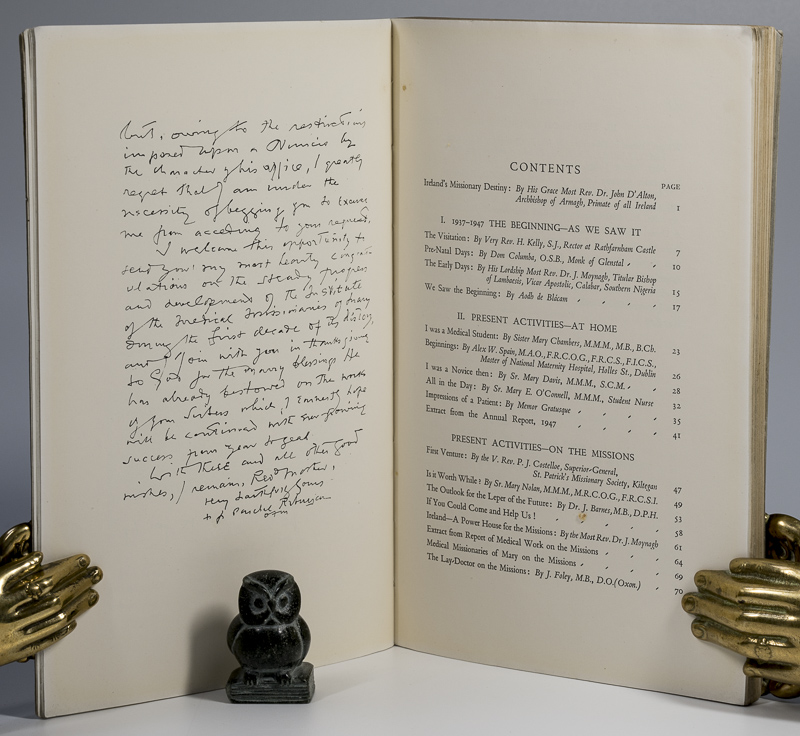 but, owing to the restrictions
imposed upon a Nuncio by
the character of his office, I greatly
regret that I am under the
necessity of begging you to excuse
me from acceding to your request.
I welcome this opportunity to
send you my most hearty congratu-
ulations on the steady progress
and development of the Institute
of the Medical Missionaries of Mary
during the first decade of its history,
and I join with you in thanksgiving
to God for the many blessings He
has already bestowed on the works
of your Sisters which, I earnestly hope
will be continued with ever growing
success from year to year.
With these and all other good
wishes, I remain, Rev. Mother,
Very faithfully yours
CONTENTS
PAGE
Ireland's Missionary Destiny: By His Grace Most Rev. Dr. John D'Alton,
Archbishop of Armagh, Primate of all Ireland 1
I. 1937-1947 THE BEGINNING—AS WE SAW IT
The Visitation: By Very Rev. H. Kelly, S.J., Rector at Rathfarnham Castle 7
Pre-Natal Days: By Dom Columba, O.S.B., Monk of Glenstal 10
The Early Days: By His Lordship Most Rev. Dr. J. Moynagh, Titular Bishop
of Lambaesis, Vicar Apostolic, Calabar, Southern Nigeria 15
We Saw the Beginning: By Aodh de Blácam 17
II. PRESENT ACTIVITIES—AT HOME
I was a Medical Student: By Sister Mary Chambers, M.M.M., M.B., B.Ch. 23
Beginnings: By Alex W. Spain, M.A.O., F.R.C.O.G., F.R.C.S., F.I.C.S.,
Master of National Maternity Hospital, Holles St., Dublin 26
I was a Novice then: By Sr. Mary Davis, M.M.M., S.C.M. 28
All in the Day: By Sr. Mary E. O'Connell, M.M.M., Student Nurse 32
Impressions of a Patient: By Memor Gratusque 35
Extract from the Annual Report, 1947 41
PRESENT ACTIVITIES—ON THE MISSIONS
First Venture: By the V. Rev. P. J. Costelloe, Superior-General,
St. Patrick's Missionary Society, Kiltegan 47
Is it Worth While! By Sr. Mary Nolan, M.M.M., M.R.C.O.G., F.R.C.S.I. 49
The Outlook for the Leper of the Future: By Dr. J. Barnes, M.B., D.P.H. 53
If You Could Come and Help Us! 58
Ireland—A Power House for the Missions: By the Most Rev. Dr. J. Moynagh 61
Extract from Report of Medical Work on the Missions 64
Medical Missionaries of Mary on the Missions 69
The Lay-Doctor on the Missions: By J. Foley, M.B., D.O. (Oxon.) 70